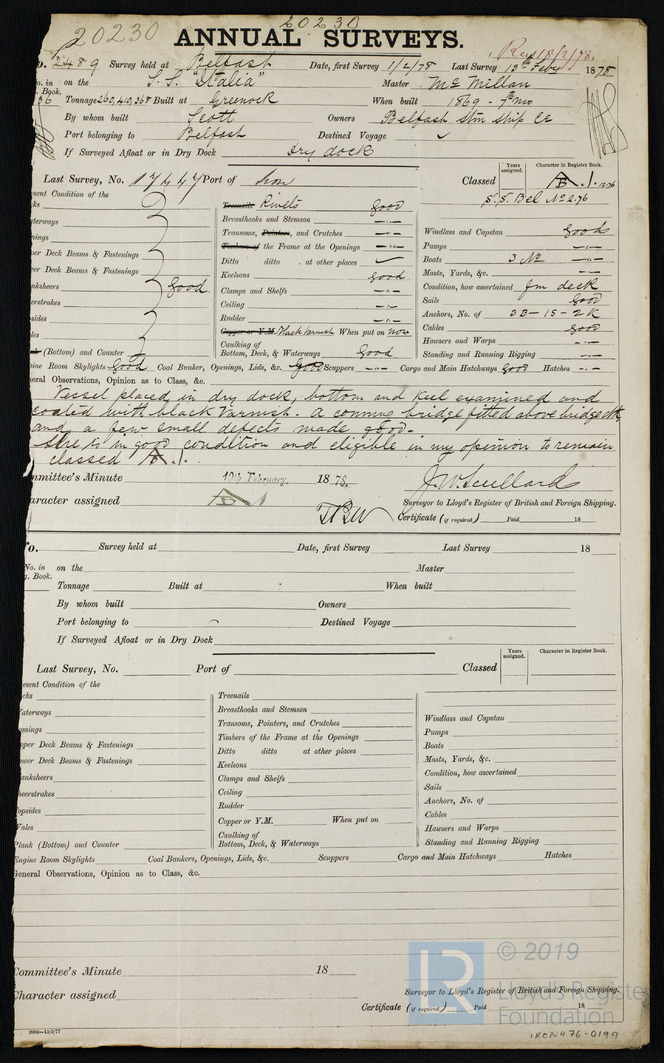 20230 20230
ANNUAL SURVEYS.
Rec 18/2/78.
o. 2489 Survey held at Belfast Date, first Survey 1/2/78 Last Survey 13th Feby 1878
o. in on the S.S. "Italia" Master Mc Millan
Book.
36 Tonnage 260,410,368 Built at Greenock When built 1869 - 7mo
By whom built Scott Owners Belfast Stm Ship Co
Port belonging to Belfast Destined Voyage ✓
If Surveyed Afloat or in Dry Dock Dry dock
Years assigned. Character in Register Book.
Last Survey, No. 17447 Port of Iron Classed A.1. 12.76
S.S. Bel No 2.76
esent Condition of the
cks
aterways
mings
per Deck Beams & Fastenings
wer Deck Beams & Fastenings
nksheers good
eerstrakes
psides
les
(Bottom) and Counter
Treenails Rivets good
Breasthooks and Stemson -"-
Transoms, Pointers, and Crutches -"-
Timbers of the Frame at the Openings -"-
Ditto ditto at other places ✓
Keelsons good
Clamps and Shelfs -"-
Ceiling -"-
Rudder -"-
Copper or Y.M. Black Varnish When put on now
Caulking of
Bottom, Deck, & Waterways Good
Windlass and Capstan Good
Pumps -"-
Boats 3 No -"-
Masts, Yards, &c. -"-
Condition, how ascertained fm deck
Sails Good
Anchors, No. of 3B-1S-2K
Cables Good
Hawsers and Warps -"-
Standing and Running Rigging -"-
gine Room Skylights Good Coal Bunkers, Openings, Lids, &c. Good Scuppers -"- Cargo and Main Hatchways good Hatches -"-
eral Observations, Opinion as to Class, &c.
Vessel placed in dry dock, bottom and Keel examined and
coated with black Varnish. A conning bridge fitted above bridge
and a few small defects made good.
She is in good condition and eligible in my opinion to remain
classed A.1.
ommittee's Minute 19th February, 1878.
aracter assigned A 1
Surveyor to Lloyd's Register of British and Foreign Shipping.
Certificate (if required) Paid 18
o. Survey held at Date, first Survey Last Survey 18
No. in on the Master
g. Book.
Tonnage Built at When built
By whom built Owners
Port belonging to Destined Voyage
If Surveyed Afloat or in Dry Dock
Years assigned. Character in Register Book.
Last Survey, No. Port of Classed
esent Condition of the
cks
aterways
omings
pper Deck Beams & Fastenings
ower Deck Beams & Fastenings
anksheers
heerstrakes
opsides
Wales
Plank (Bottom) and Counter
Treenails
Breasthooks and Stemson
Transoms, Pointers, and Crutches
Timbers of the Frame at the Openings
Ditto ditto at other places
Keelsons
Clamps and Shelfs
Ceiling
Rudder
Copper or Y.M. When put on
Caulking of
Bottom, Deck, & Waterways
Windlass and Capstan
Pumps
Boats
Masts, Yards, &c.
Condition, how ascertained
Sails
Anchors, No. of
Cables
Hawsers and Warps
Standing and Running Rigging
Engine Room Skylights Coal Bunkers, Openings, Lids, &c. Scuppers Cargo and Main Hatchways Hatches
General Observations, Opinion as to Class, &c.
Committee's Minute 18
Character assigned
Surveyor to Lloyd's Register of British and Foreign Shipping.
Certificate (if required) Paid 18
2000—13/3/77
© 2019
LR Lloyd's Register
Foundation
IRON476-0199